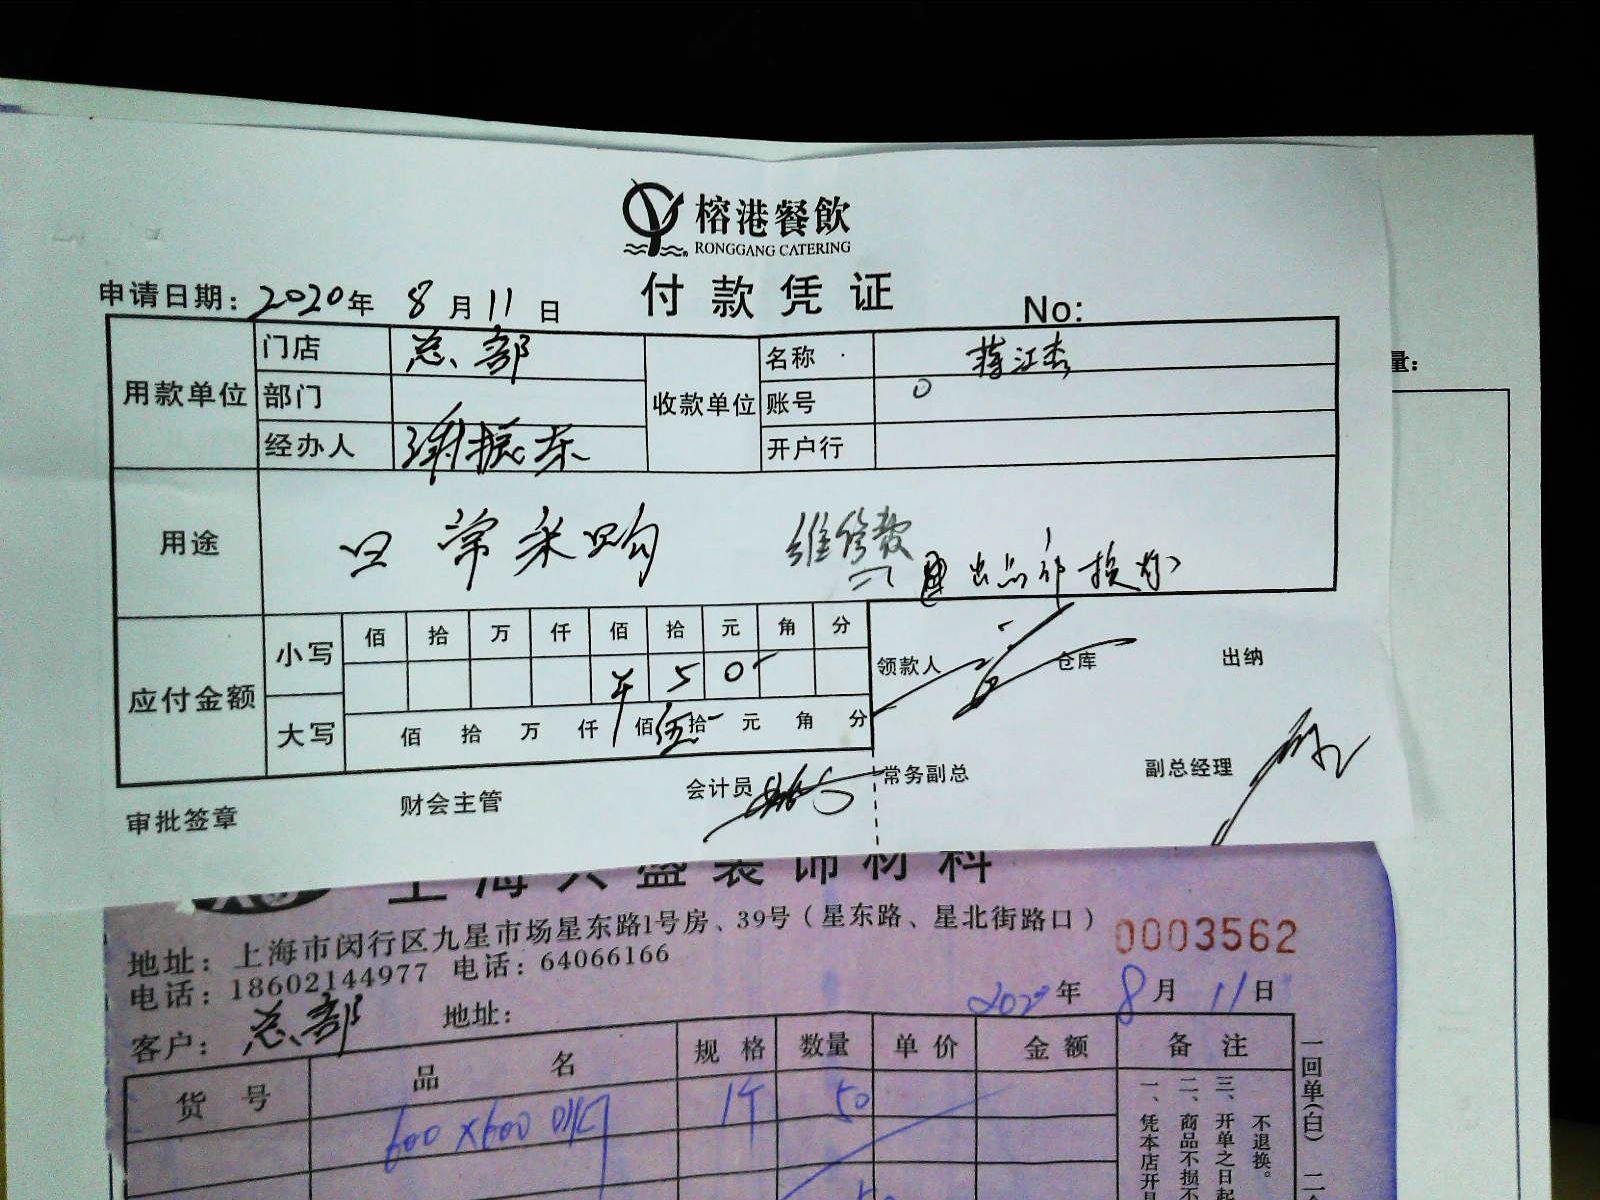 榕港餐飲
RONGGANG CATERING
付款凭证
申请日期：2020年 8月11日
No:
用款单位 门店 总部 收款单位 名称 蒋江
部门 账号
经办人 谢振东 开户行
用途 日常采购 维修费
出品部换灯
应付金额 小写 佰 拾 万 仟 佰 拾 元 角 分
¥ 5 0
大写 佰 拾 万 仟 佰 伍拾 元 角 分
领款人 仓库 出纳
审批签章 财会主管 会计员 常务副总 副总经理
量：
上海 盛装饰材料
地址：上海市闵行区九星市场星东路1号房、39号（星东路、星北街路口）
0003562
电话：18602144977 电话：64066166
2020年 8月 11日
客户：总部 地址：
货号 品名 规格 数量 单价 金额 备注
600×600 1个 50
一、凭本店开
二、商品不损不
三、开单之日起
不退换。
一回单(白) 二